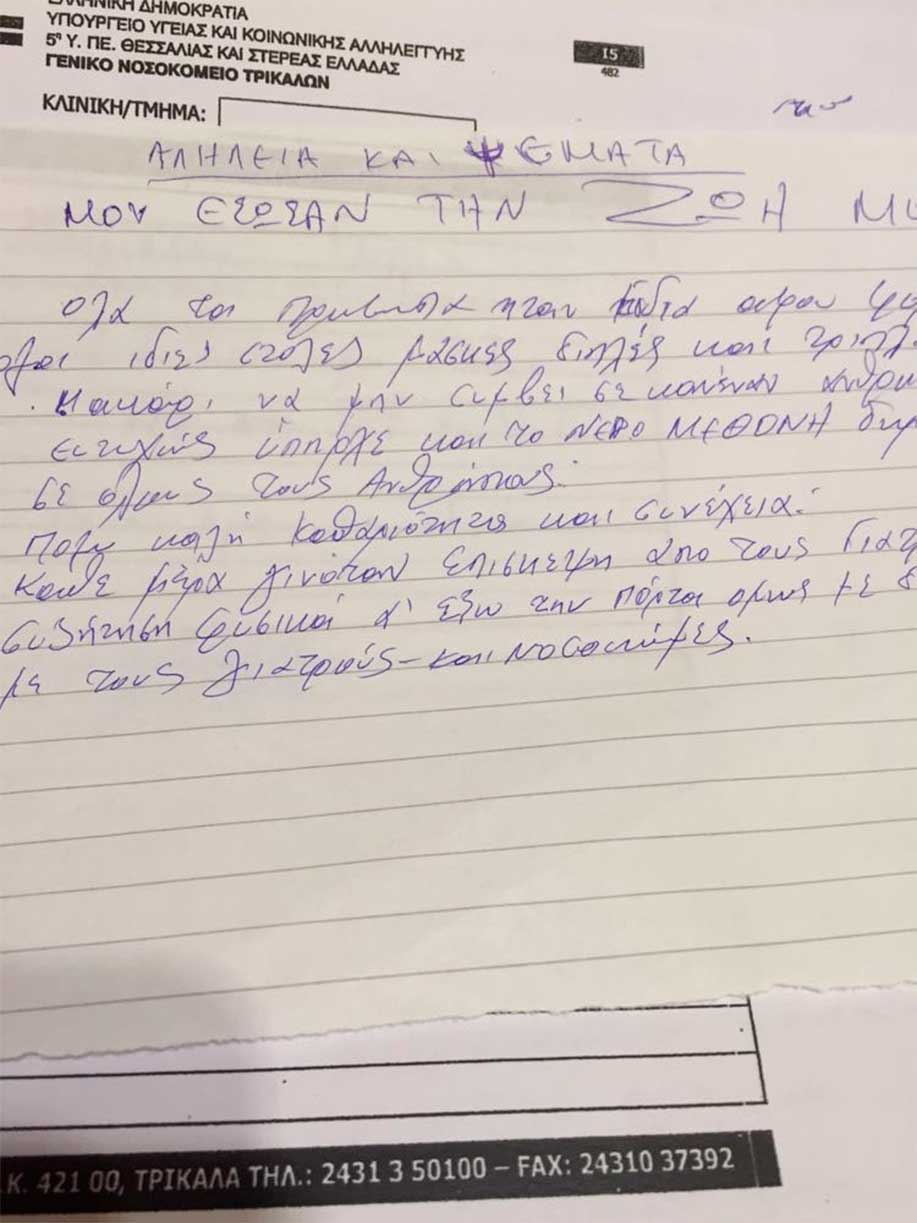 ΕΛΛΗΝΙΚΗ ΔΗΜΟΚΡΑΤΙΑ
ΥΠΟΥΡΓΕΙΟ ΥΓΕΙΑΣ ΚΑΙ ΚΟΙΝΩΝΙΚΗΣ ΑΛΛΗΛΕΓΓΥΗΣ
5η Υ. ΠΕ. ΘΕΣΣΑΛΙΑΣ ΚΑΙ ΣΤΕΡΕΑΣ ΕΛΛΑΔΑΣ
ΓΕΝΙΚΟ ΝΟΣΟΚΟΜΕΙΟ ΤΡΙΚΑΛΩΝ
15
482
ΚΛΙΝΙΚΗ/ΤΜΗΜΑ:
ΑΛΗΛΕΙΑ ΚΑΙ ΨΕΜΑΤΑ
ΜΟΥ ΕΣΩΣΑΝ ΤΗΝ ΖΩΗ
Ολα τα ηταν ιδια αφου
ιδιες στολες μασκες διπλές και
Μακάρι να μην συμβει σε κανέναν
ευτυχώς ύπηρχε και το ΝΕΡΟ ΜΕΘΩΝΗ
σε όλους τους Ανθρώπους.
Πολυ καλή καθαριότητα και συνέχεια.
Καθε μέρα γινόταν επισκεψη απο τους
συζήτηση φυσικά απ' έξω την πόρτα ομως με
με τους γιατρούς - και νοσοκόμες.
Κ. 421 00, ΤΡΙΚΑΛΑ ΤΗΛ.: 2431 3 50100 – FAX: 24310 37392